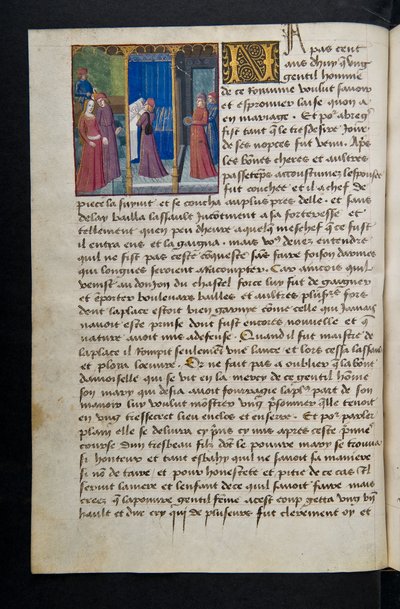 N A pas cent
ans dhuy q ung
gentil homme
de ce royaume voulut savoir
et esprouver laise quon a
en mariage . Et po abreg
fist tant q le tresdesire jour
de ses nopces fut venu . Aps
les bones cheres et aultres
passetemps acoustumez lespousee
fut couchee et il a chef de
piece la suyvit et se coucha au plus pres delle . et sans
delay bailla lassault incontinent a sa forteresse et
tellement quen peu dheure a quelq meschef q ce fust
il entra ens et la gaigna . mais vo devez entendre
quil ne fist pas ceste coqueste sas faire foison darmes
qui longues seroient a racompter . Car aincois quil
venist au donjon du chastel force luy fut de gaigner
et emporter boulevars bailles et aultres plusrs fors
dont la place estoit bien garnye come celle qui jamais
navoit este prinse dont fust encores nouvelle et q
nature avoit mis a defense . Quand il fut maistre de
la place il rompit seulemet une lance et lors cessa lassault
et ploya loeuvre . Or ne fait pas a oublier q la bone
damoiselle qui se vit en la mercy de ce gentil home
son mary qui desia avoit fourragie la plus part de son
manoir luy voulut monstrer ung prisonnier qlle tenoit
en ung tressecret lieu enclos et enserre . Et po parler
plain elle se delivra cy pris cy mis apres ceste premie
course dun tresbeau filz dot le pouvre mary se trouva
si honteux et tant esbahy quil ne savoit sa maniere
si no de taire . et pour honestete et pitie de ce cas il
servit la mere et lenfant de ce quil savoit faire mais
creez q la pouvre gentil feme a cest coup getta ung bie
hault et dur cry qui de plusieurs fut clerement oy et